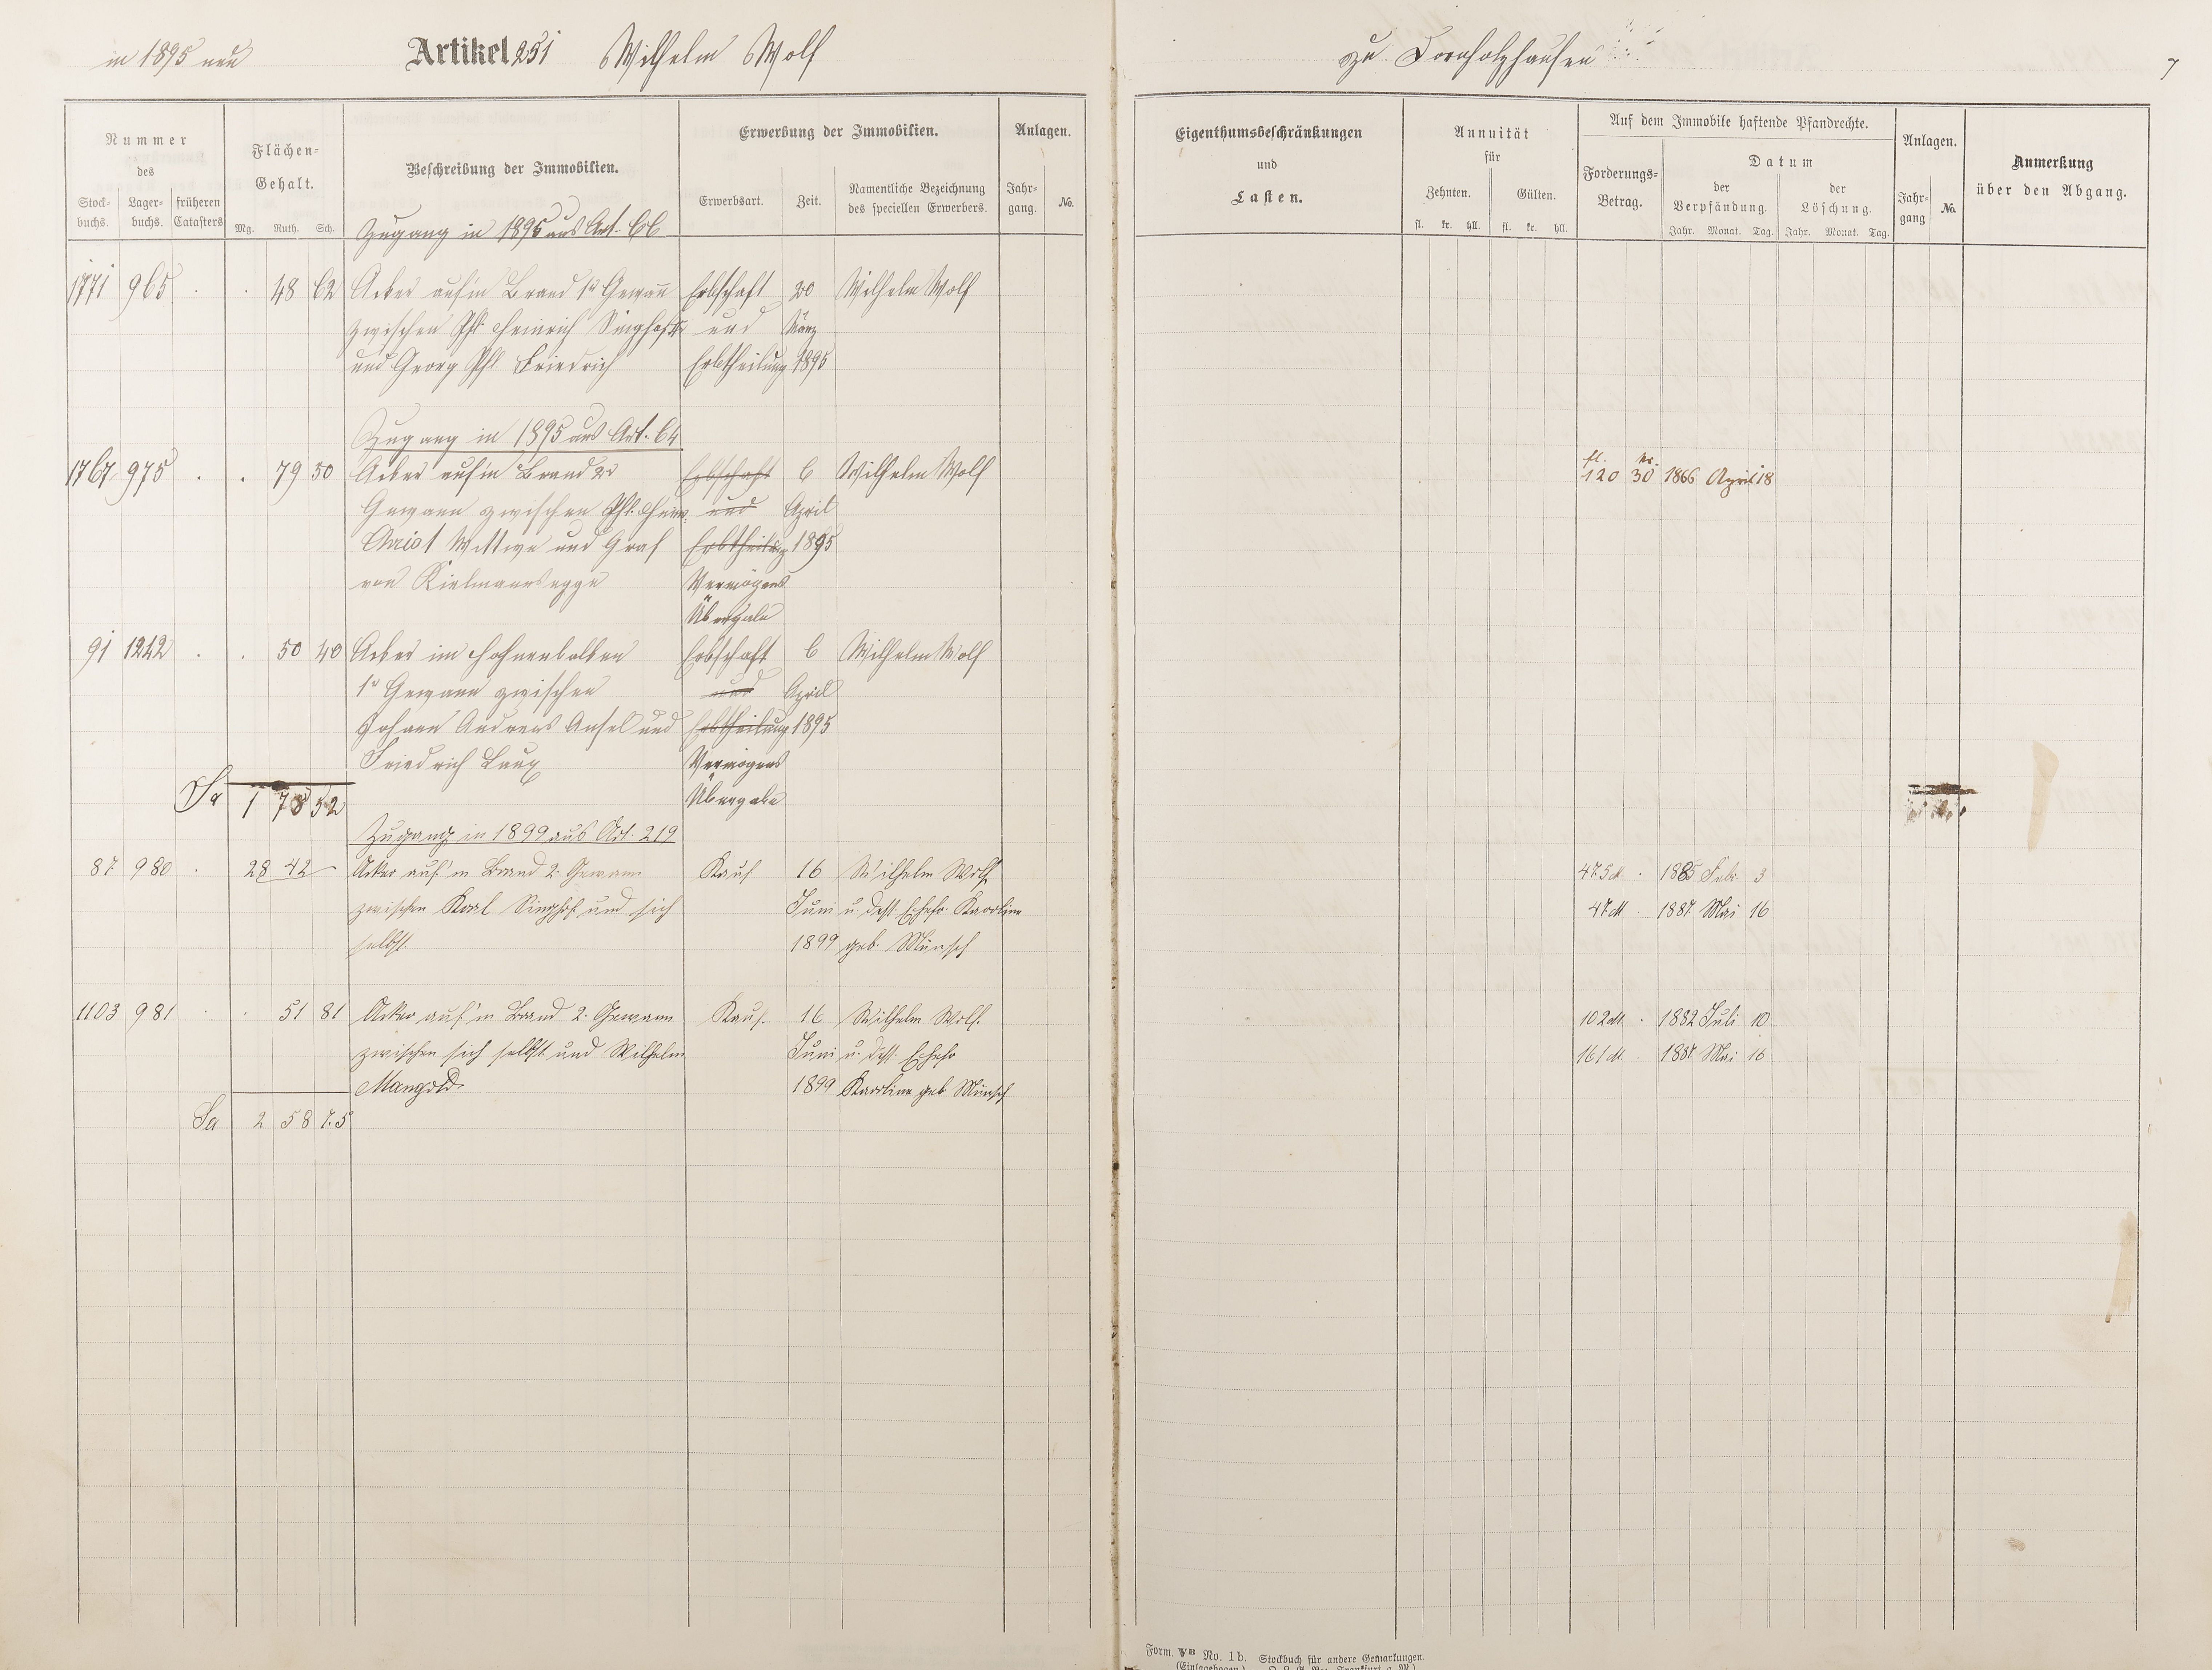 in 1895 neu
Artikel 251 Wilhelm Wolf
zu Dornholzhausen
7
Nummer
des
Stock-
buchs.
Lager-
buchs.
früheren
Catasters
Flächen-
Gehalt.
Mg. Ruth. Sch.
Beschreibung der Immobilien.
Erwerbung der Immobilien.
Erwerbsart.
Zeit.
Namentliche Bezeichnung
des speciellen Erwerbers.
Anlagen.
Jahr-
gang.
No.
Eigenthumsbeschränkungen
und
Lasten.
Annuität
für
Zehnten.
Gülten.
fl. kr. hll. fl. kr. hll.
Auf dem Immobile haftende Pfandrechte.
Forderungs-
Betrag.
Datum
der
Verpfändung.
der
Löschung.
Jahr. Monat. Tag. Jahr. Monat. Tag.
Anlagen.
Jahr-
gang
No.
Anmerkung
über den Abgang.
Zugang in 1895 aus Art. 66
1771 965 . . 48 62 Acker auf'm Brand 1r Gewann Erbschaft 20 Wilhelm Wolf
zwischen Phl. Heinrich Singhof und März
und Georg Phl. Friedrich Erbtheilung 1895
Zugang in 1895 aus Art. 64
1767 975 . . 79 50 Acker auf'm Brand 2r Erbschaft 6 Wilhelm Wolf
fl. kr.
120 30 1866 April 18
Gewann zwischen Phl. Heinr. und April
Christ Wittwe und Graf Erbtheilung 1895
von Kielmannsegge Vermögens
Übergabe
91 1222 . . 50 40 Acker im Hahnenbalken Erbschaft 6 Wilhelm Wolf
1r Gewann zwischen und April
Johann Andreas Ansel und Erbtheilung 1895
Friedrich Laux Vermögens
Sa 1 78 52 Übergabe
Zugang in 1899 aus Art. 219
87 980 . 28 42 Acker auf'm Brand 2. Gewann Kauf 16 Wilhelm Wolf 475 M . 1885 Febr. 3
zwischen Karl Singhof und sich Juni u. dess. Ehefr. Karoline 47 M . 1887 Mai 16
selbst. 1899 geb. Münsch
1103 981 . . 51 81 Acker auf'm Brand 2. Gewann Kauf 16 Wilhelm Wolf 102 M . 1882 Juli 10
zwischen sich selbst und Wilhelm Juni u. dess. Ehefr 161 M . 1887 Mai 16
Mangold. 1899 Karoline geb. Münsch
Sa 2 58 75
Form. VB No. 1b. Stockbuch für andere Gemarkungen.
(Einlagebogen.)